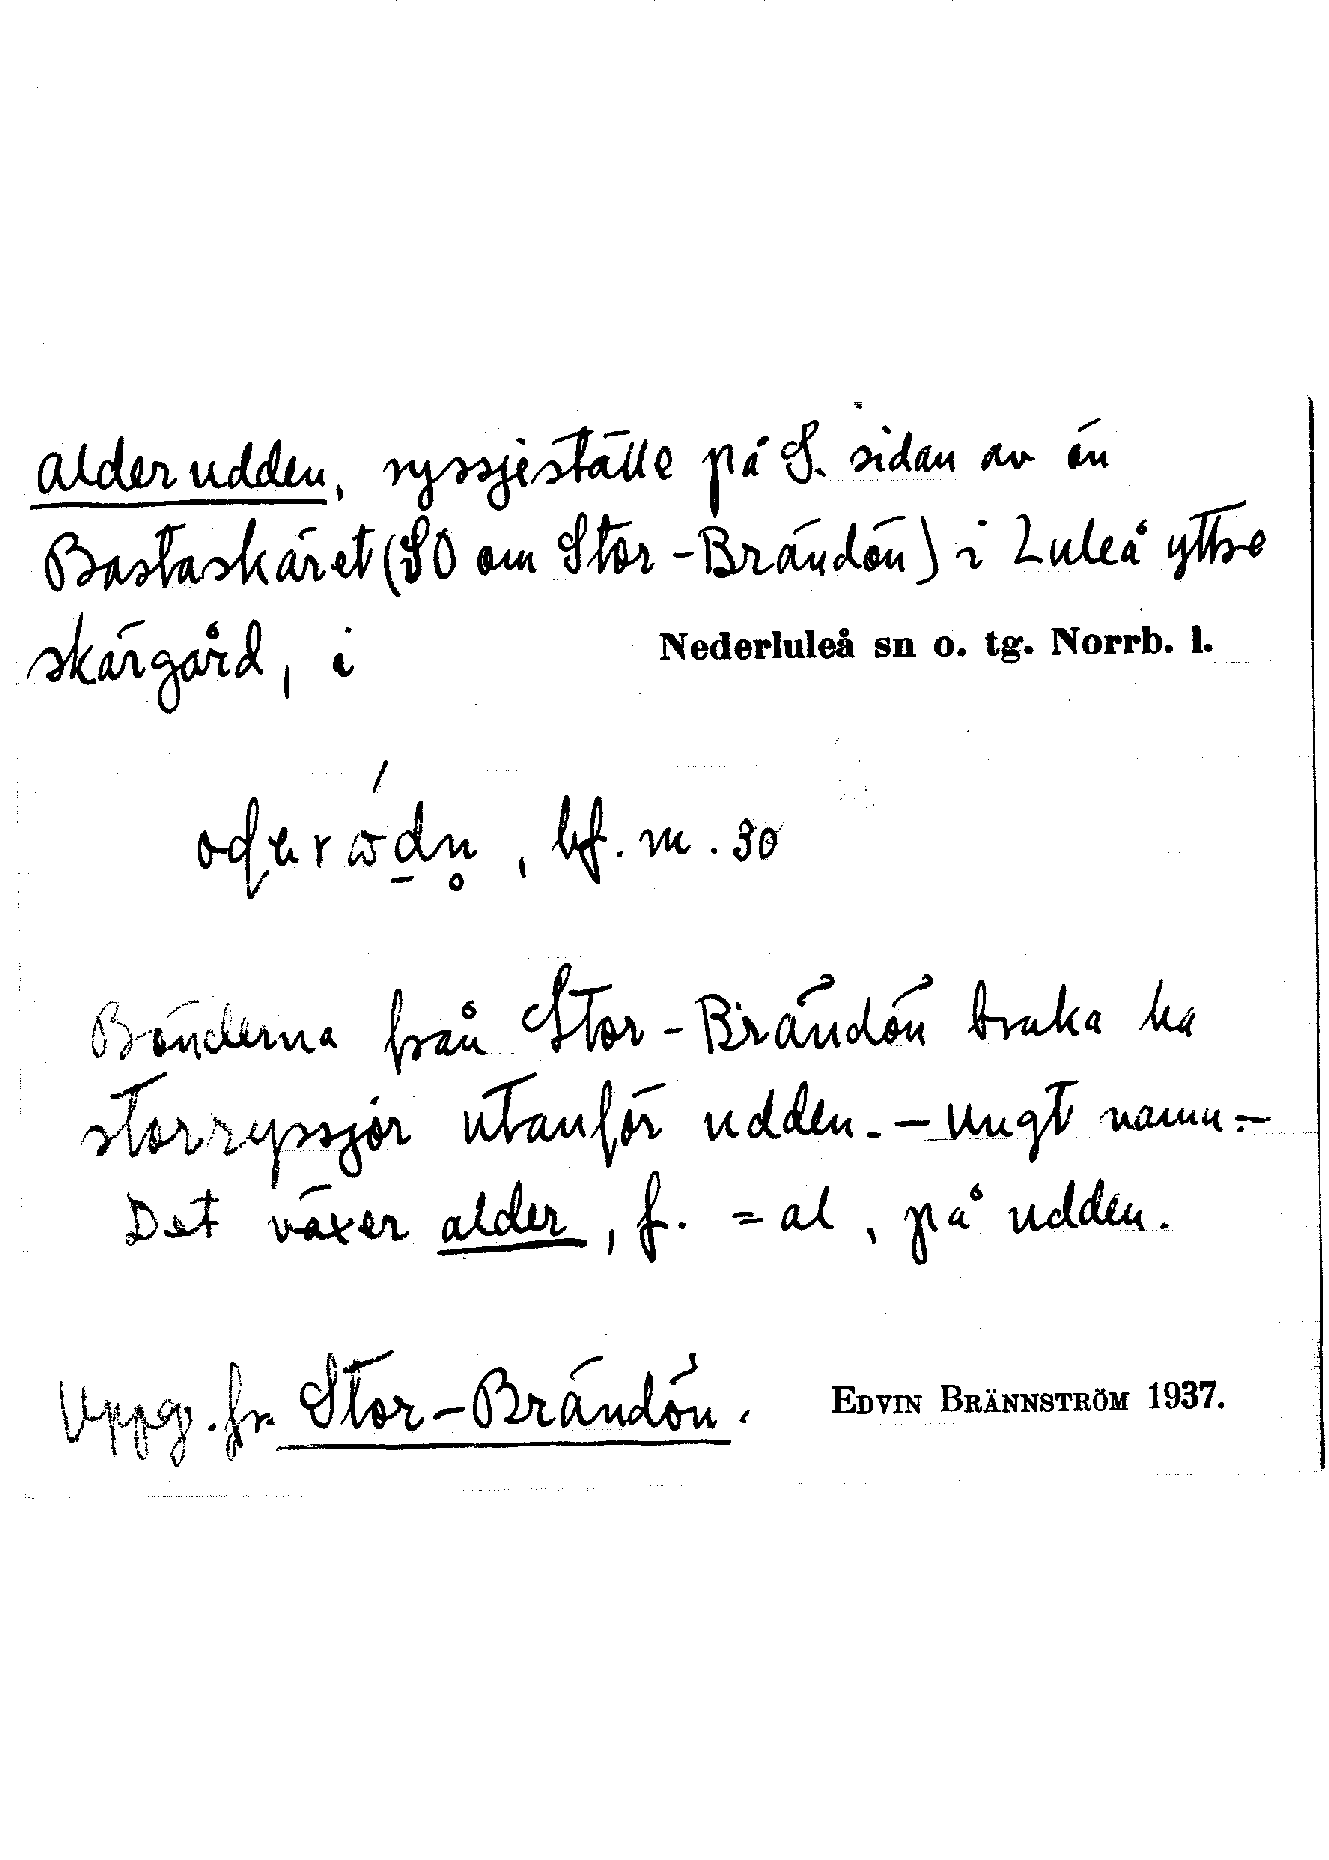 alderudden, ryssjeställe på S. sidan av ön
Bastaskäret (SO om Stor-Brändön) i Luleå yttre
skärgård, i Nederluleå sn o. tg. Norrb. l.
, bf. m. 30
Bönderna från Stor-Brändön bruka ha
storryssjor utanför udden. - Ungt namn.-
Det växer alder, f. = al, på udden.
Uppg. fr. Stor-Brändön. EDVIN BRÄNNSTRÖM 1937.